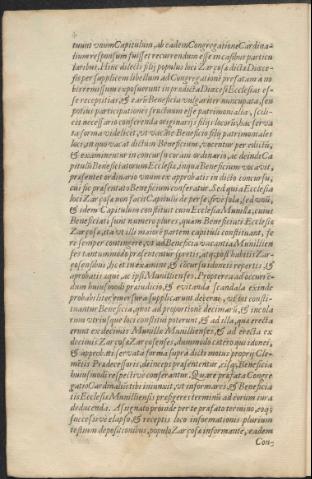 tuum unum Capitulum, ab eadem Congregatione Cardina-
lium responsum fuisset recurrendum esse in casibus particu
laribus. Hinc dilecti filij populus loci Zarçosa dictæ Diœce-
sis per supplicem libellum ad Congregationē prefatam a no
bis remissum exposuerunt in prædicta Diœcesi Ecclesias es-
se receptitias, & earū Beneficia vulgariter nuncupata, seu
potius participationes fructuum esse patrimoniales, scili-
cet necessario conferenda originarijs filijs locorū, hac serva
ta forma videlicet, ut vacante Beneficio filij patrimoniales
loci, in quo vacat dictum Beneficium, vocentur per edictū,
& examinentur in concursu coram ordinario, ac deinde Ca
pitulū Beneficiatorum Ecclesiæ, in qua Beneficium vacavit,
præsentet ordinario unum ex approbatis in dicto concursu,
cui sic præsentato Beneficium conferatur. Sed quia Ecclesia
loci Zarçosa non facit Capitulū de per se, sive sola, sed unū,
& idem Capitulum constituit cum Ecclesia Munilla, cuius
Beneficiati sunt numero plures, quam Beneficiati Ecclesiæ
Zarçosa, ita ut illi maiorē partem capituli constituant, fe
re semper contingere, ut ad Beneficia vacantia Munillien
ses tantummodo præsententur spretis, atq; posthabitis Zar-
çosensibus, licet in examine, & cōcursu idonei repertis, &
approbatis æque ac ipsi Munillienses. Propterea ad occurrē-
dum huiusmodi præiudicio, & evitanda scandala exinde
probabiliter emersura supplicarunt decerni, ut tot consti-
tuantur Beneficia, quot ad proportionē decimarū, & incola
rum utriusque loci constitui poterunt, & ad illa, quæ erecta
erunt ex decimis Munillæ Munillienses, & ad erecta ex
decimis Zarçosæ Zarçosenses, dummodo cætero qui idonei,
& approbati servata forma supra dicti motus proprij Cle-
mētis Prædecessoris, deinceps præsententur, eisq; Beneficia
huiusmodi respectivè conferantur. Quare præfata Congre
gatio Cardinaliū tibi iniunxit, ut informares, & Beneficia
tis Ecclesiæ Munilliensis præfigeres terminū ad eorum iura
deducenda. Assignato proinde per te præfato termino, eoq;
successivè elapso, & receptis loco informationis plurium
testium depositionibus, populū Zarçosa informante, eadem
Con-